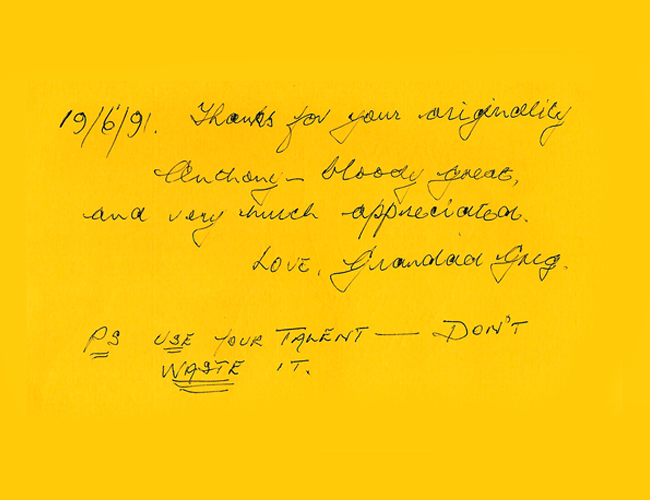 19/6/91. Thanks for your originality
Anthony - bloody great,
and very much appreciated.
LOVE, Grandad Greg.
PS USE YOUR TALENT — DON'T
WASTE IT.